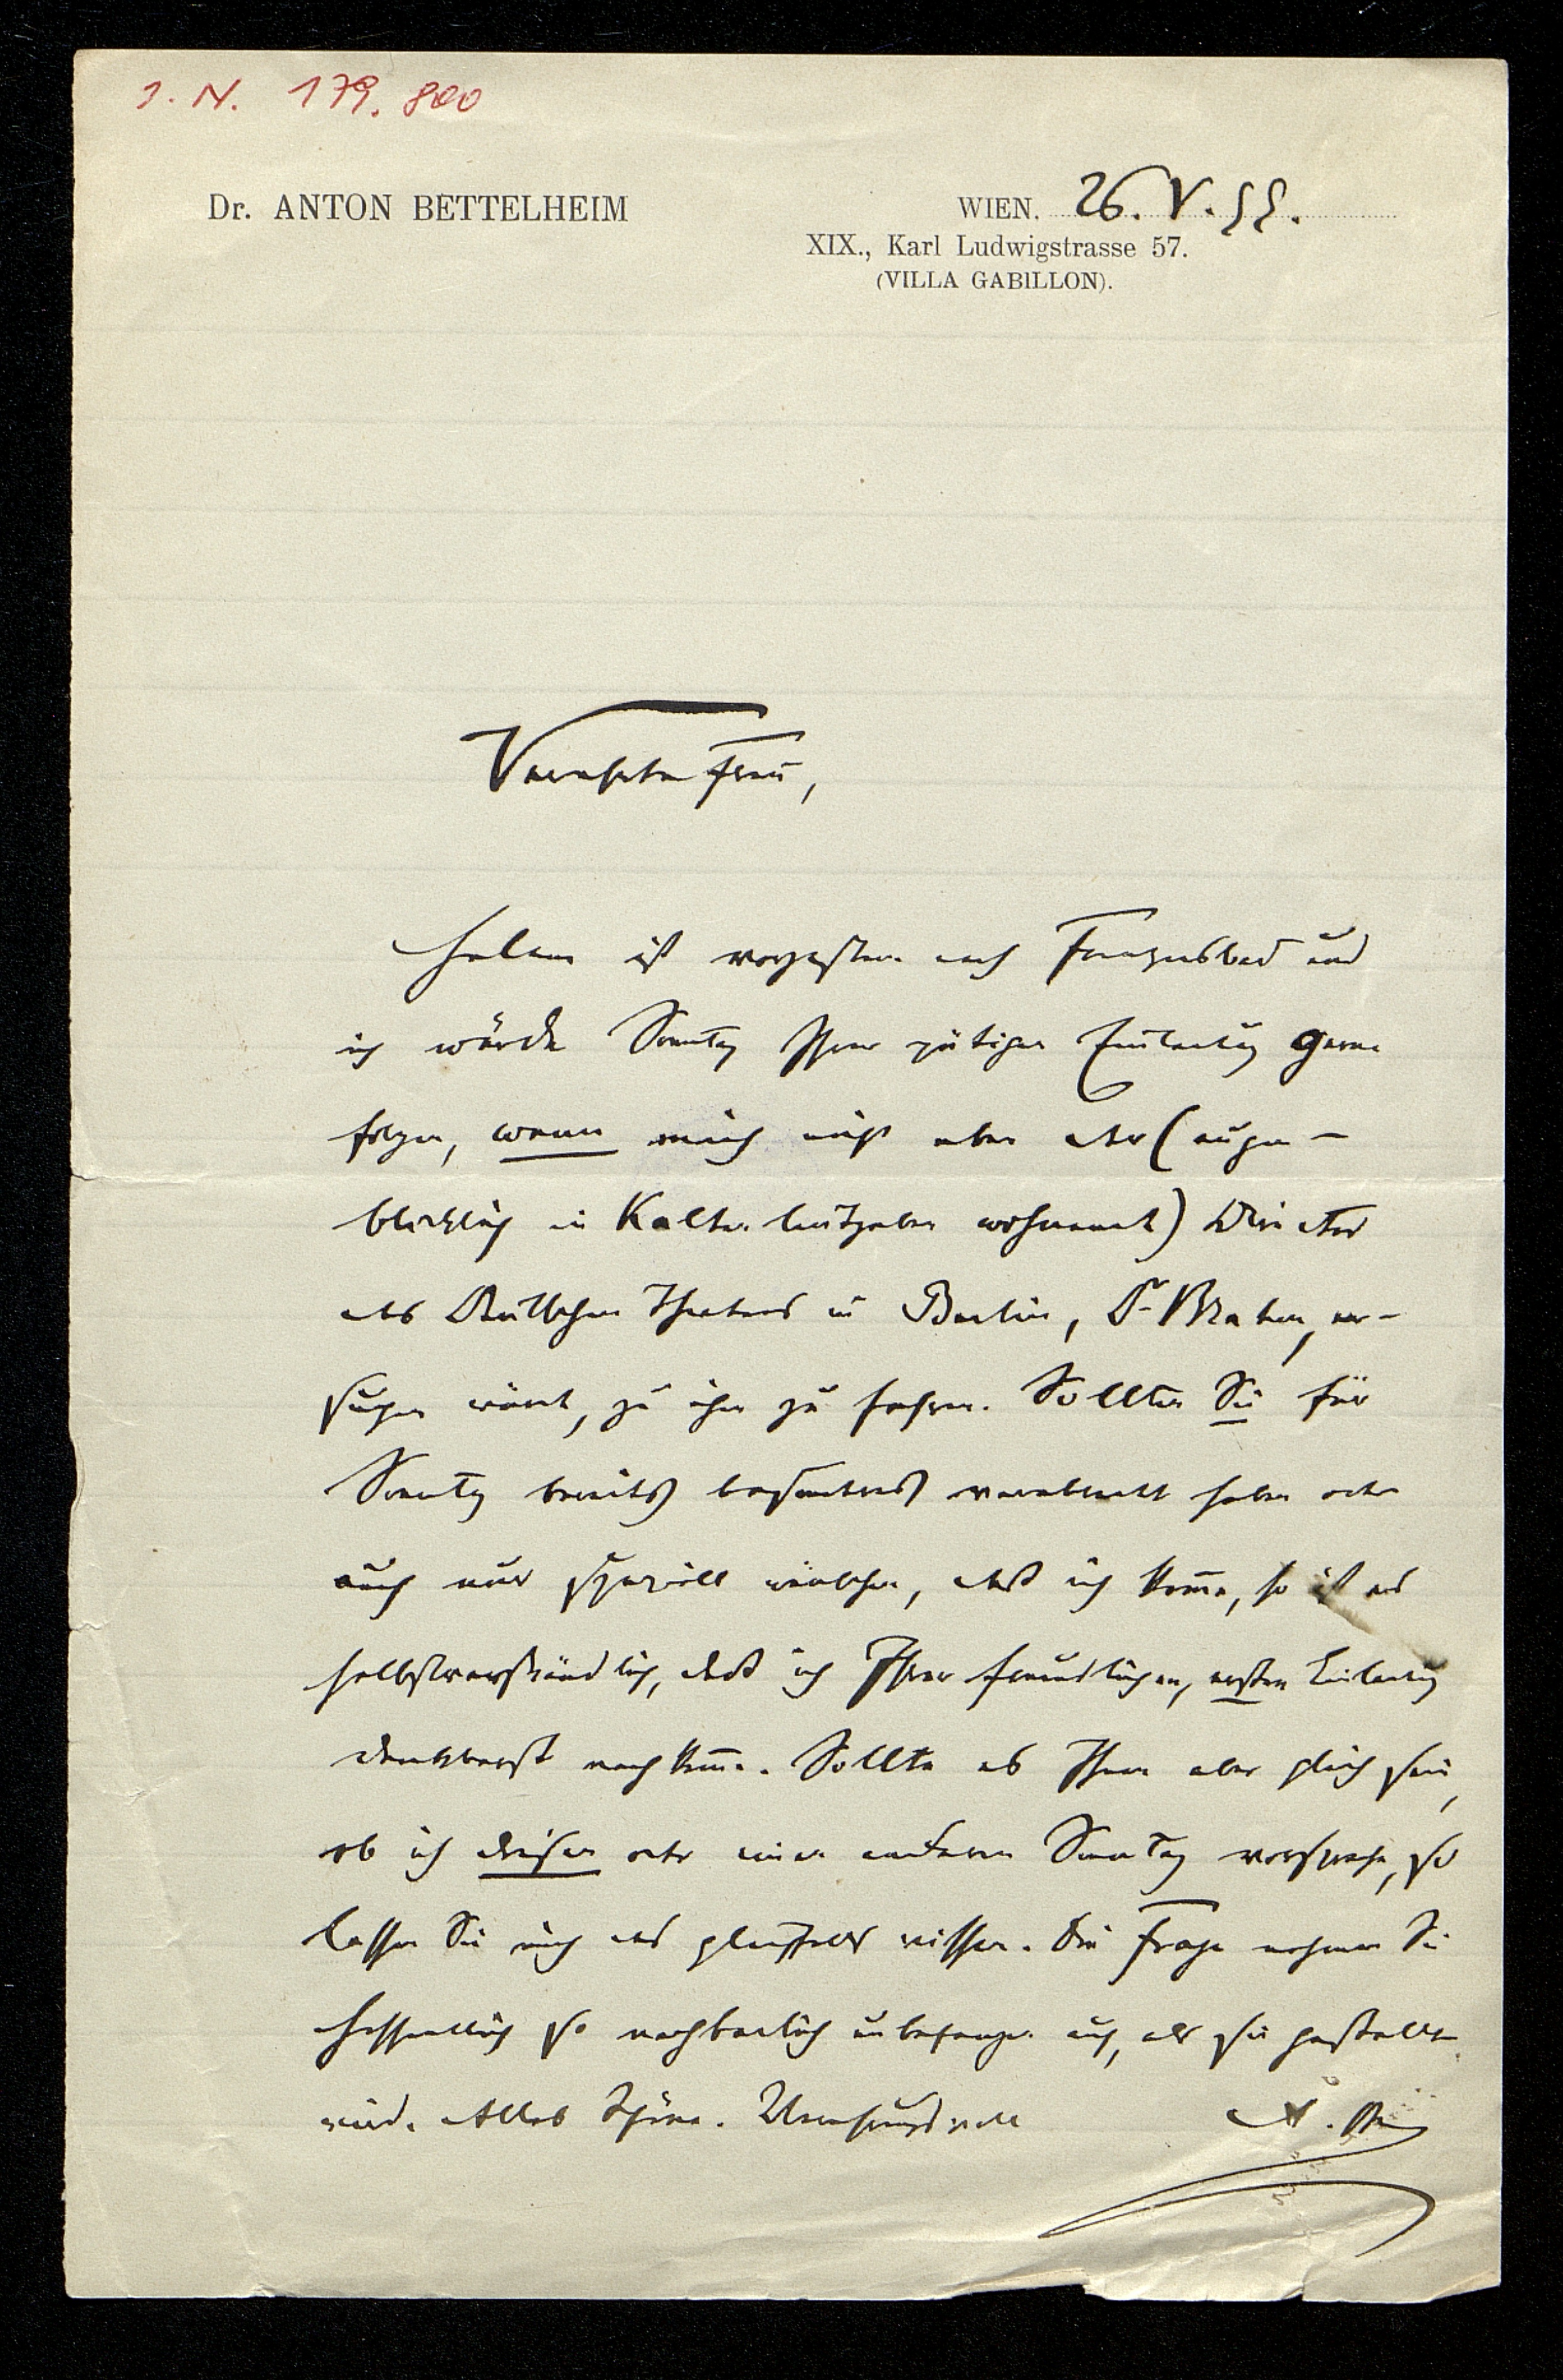 I. N. 179.800
Dr. ANTON BETTELHEIM
WIEN, 26. V. 99.
XIX., Karl Ludwigstrasse 57.
(VILLA GABILLON).
Verehrte Frau,
Helene ist vorgestern nach Franzensbad und
ich würde Sonntag Ihrer gütigen Einladung gerne
folgen, wenn mich nicht eben der (augen-
blicklich in Kaltenleutgeben wohnende) Director
des Deutschen Theaters in Berlin, Dr Brahm, er-
suchen würde, zu ihm zu fahren. Sollten Sie für
Sonntag bereits besonders verabredet haben oder
auch nur speziell wünschen, daß ich komme, so ist es
selbstverständlich, daß ich Ihrer freundlichen, ersten Einladung
dankbarst nachkomme. Sollte es Ihnen aber gleich sein,
ob ich diesen oder einen anderen Sonntag vorspreche, so
lassen Sie mich das gleichfalls wissen. Die Frage nehmen Sie
hoffentlich so nachbarlich unbefangen auf, als sie gestellt
wird. Alles Schöne. Verehrungsvoll
A. B.